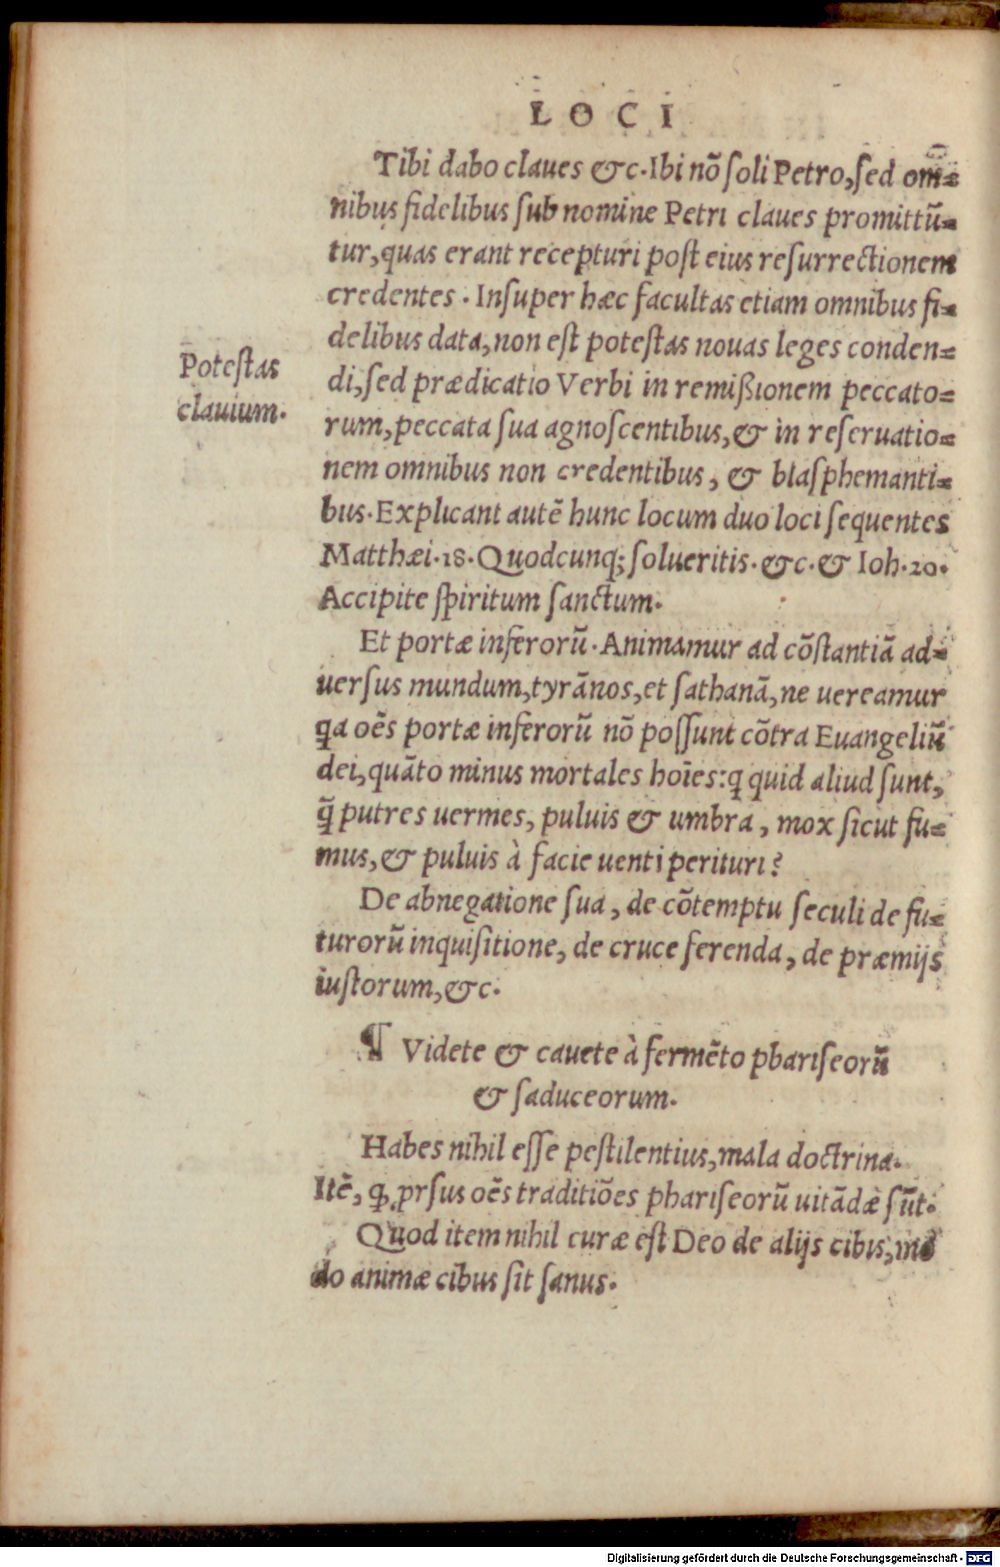 LOCI
Tibi dabo claues &c. Ibi nõ soli Petro, sed om=
nibus fidelibus sub nomine Petri claues promittũ=
tur, quas erant recepturi post eius resurrectionem
credentes. Insuper hæc facultas etiam omnibus fi=
delibus data, non est potestas nouas leges conden=
Potestas
clauium.
di, sed prædicatio Verbi in remißionem peccato=
rum, peccata sua agnoscentibus, & in reseruatio=
nem omnibus non credentibus, & blasphemanti=
bus. Explicant autẽ hunc locum duo loci sequentes
Matthæi. 18. Quodcunq; solueritis. &c. & Ioh. 20.
Accipite spiritum sanctum.
Et portæ inferorũ. Animamur ad cõstantiã ad=
uersus mundum, tyrãnos, et sathanã, ne uereamur
qa oẽs portæ inferorũ nõ possunt cõtra Euangeliũ
dei, quãto minus mortales hoĩes: q quid aliud sunt,
q̃ putres uermes, puluis & umbra, mox sicut fu=
mus, & puluis à facie uenti perituri?
De abnegatione sua, de cõtemptu seculi de fu=
turorũ inquisitione, de cruce ferenda, de præmijs
iustorum, &c.
¶ Videte & cauete à fermẽto phariseorũ
& saduceorum.
Habes nihil esse pestilentius, mala doctrina.
Itẽ, ꝙ prsus oẽs traditiões phariseorũ uitãdæ sũt.
Quod item nihil curæ est Deo de alijs cibis, mo
do animæ cibus sit sanus.
Digitalisierung gefördert durch die Deutsche Forschungsgemeinschaft - DFG